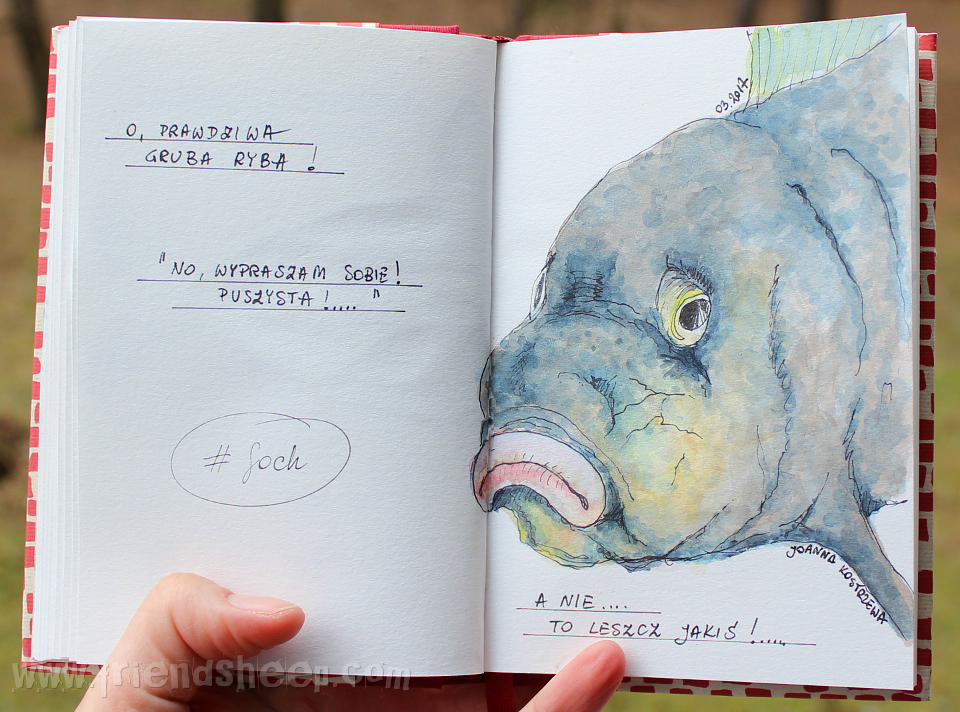 O, PRAWDZIWA
GRUBA RYBA !
"NO, WYPRASZAM SOBIE!
PUSZYSTA !.... "
# foch
03.2017
JOANNA KOSTRZEWA
A NIE....
TO LESZCZ JAKIŚ !.....
www.friendsheep.com